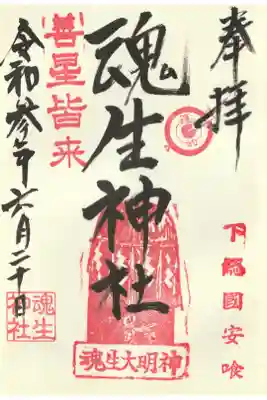 奉拝
下總國安喰
魂生神社
魂生大明神
善星皆来
令和参年六月二十日
魂生
神社